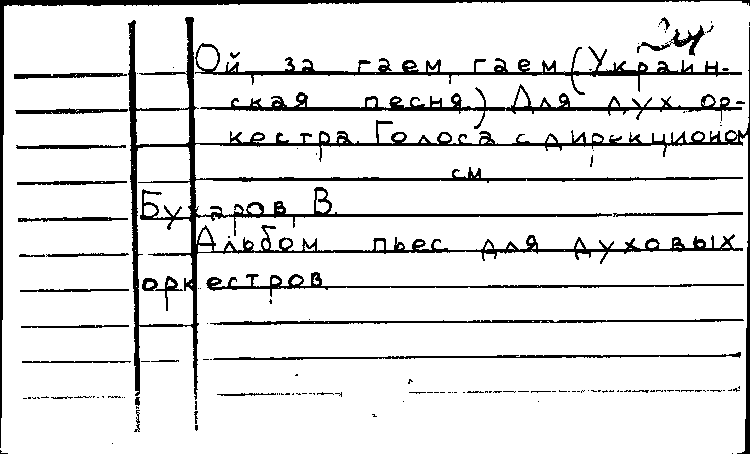 Ой, за гаем, гаем (Украин-
ская песня.) Для дух. ор-
кестра. Голоса с дирекционом
см.
Бухаров, В.
Альбом пьес для духовых
оркестров.